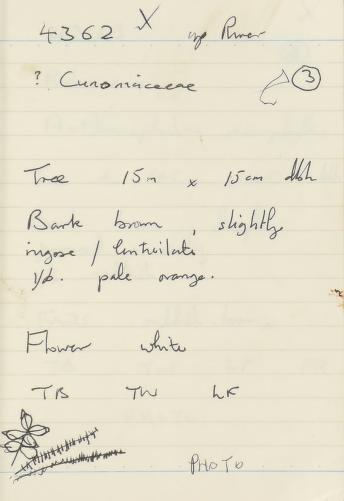 4362 X up River
? Cunoniaceae 3
Tree 15m x 15cm dbh
Bark brown, slightly
rugose / lenticilate
1/b. pale orange.
Flower white
TB TW LK
PHOTO